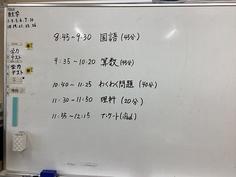 8:45~9:30 国語(45分)
9:35~10:20 算数(45分)
10:40~11:25 わくわく問題(40分)
11:30~11:50 理科(20分)
11:55~12:15 アンケート